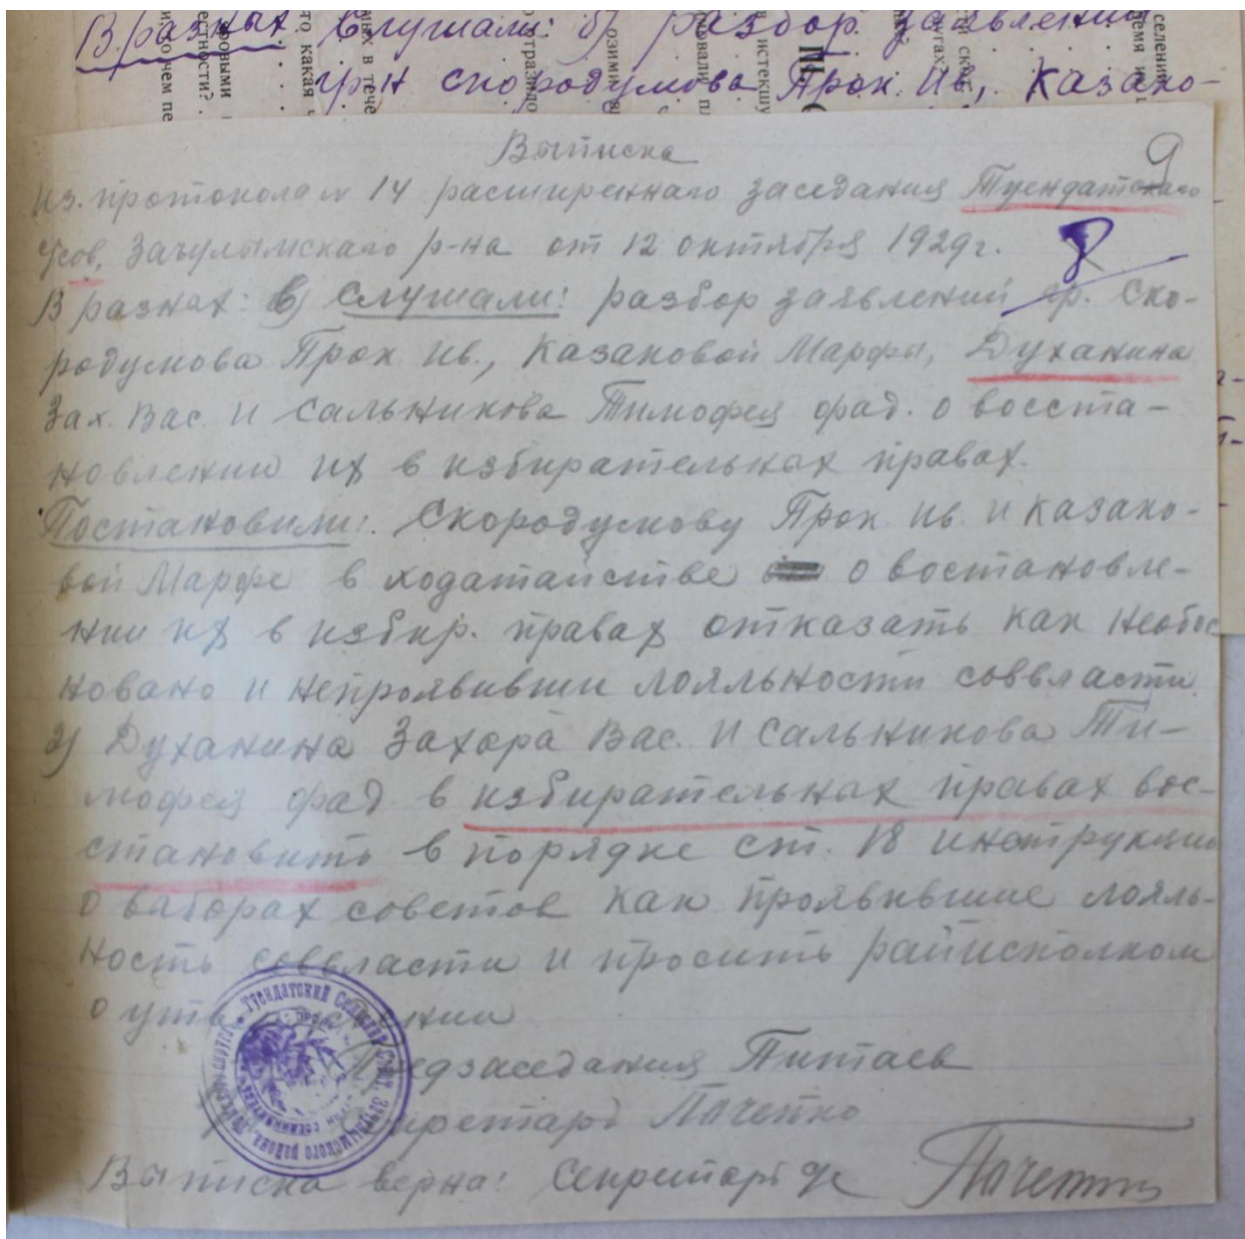 В разных Слушали: б) разбор заявлений
гр-н Скородумова Прок. Ив., Казако-
Выписка
9
Из протокола № 14 расширеннаго заседания Туендатскаго
8
с/сов. Зачулымскаго р-на от 12 октября 1929 г.
В разных: в) Слушали: разбор заявлений гр. Ско-
родумова Прок Ив., Казаковой Марфы, Духанина
Зах. Вас. и Сальникова Тимофея фад. о восста-
новлении их в избирательных правах.
Постановили: Скородумову Прок. Ив. и Казако-
вой Марфе в ходатайстве о востановле-
нии их в избир. правах отказать как необос
новано и непроявивши лояльности соввласти
2) Духанина Захара Вас. и Сальникова Ти-
мофея фад. в избирательных правах вос-
становить в порядке ст. 18 инструкции
о выборах советов как проявившие лояль-
ность соввласти и просить райисполком
о утв
Предзаседания Питаев
Секретарь Пачетко
Выписка верна: Секретарь
Туендатский Сельский Совет Зачулымского района